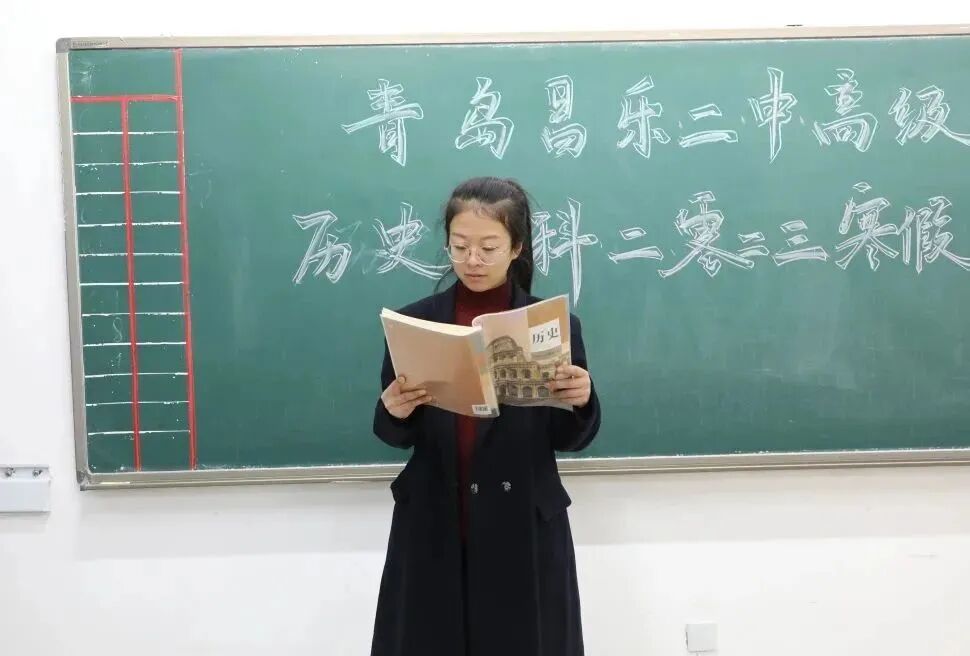 青岛昌乐二中高级
历史 科二零二三寒假
历史